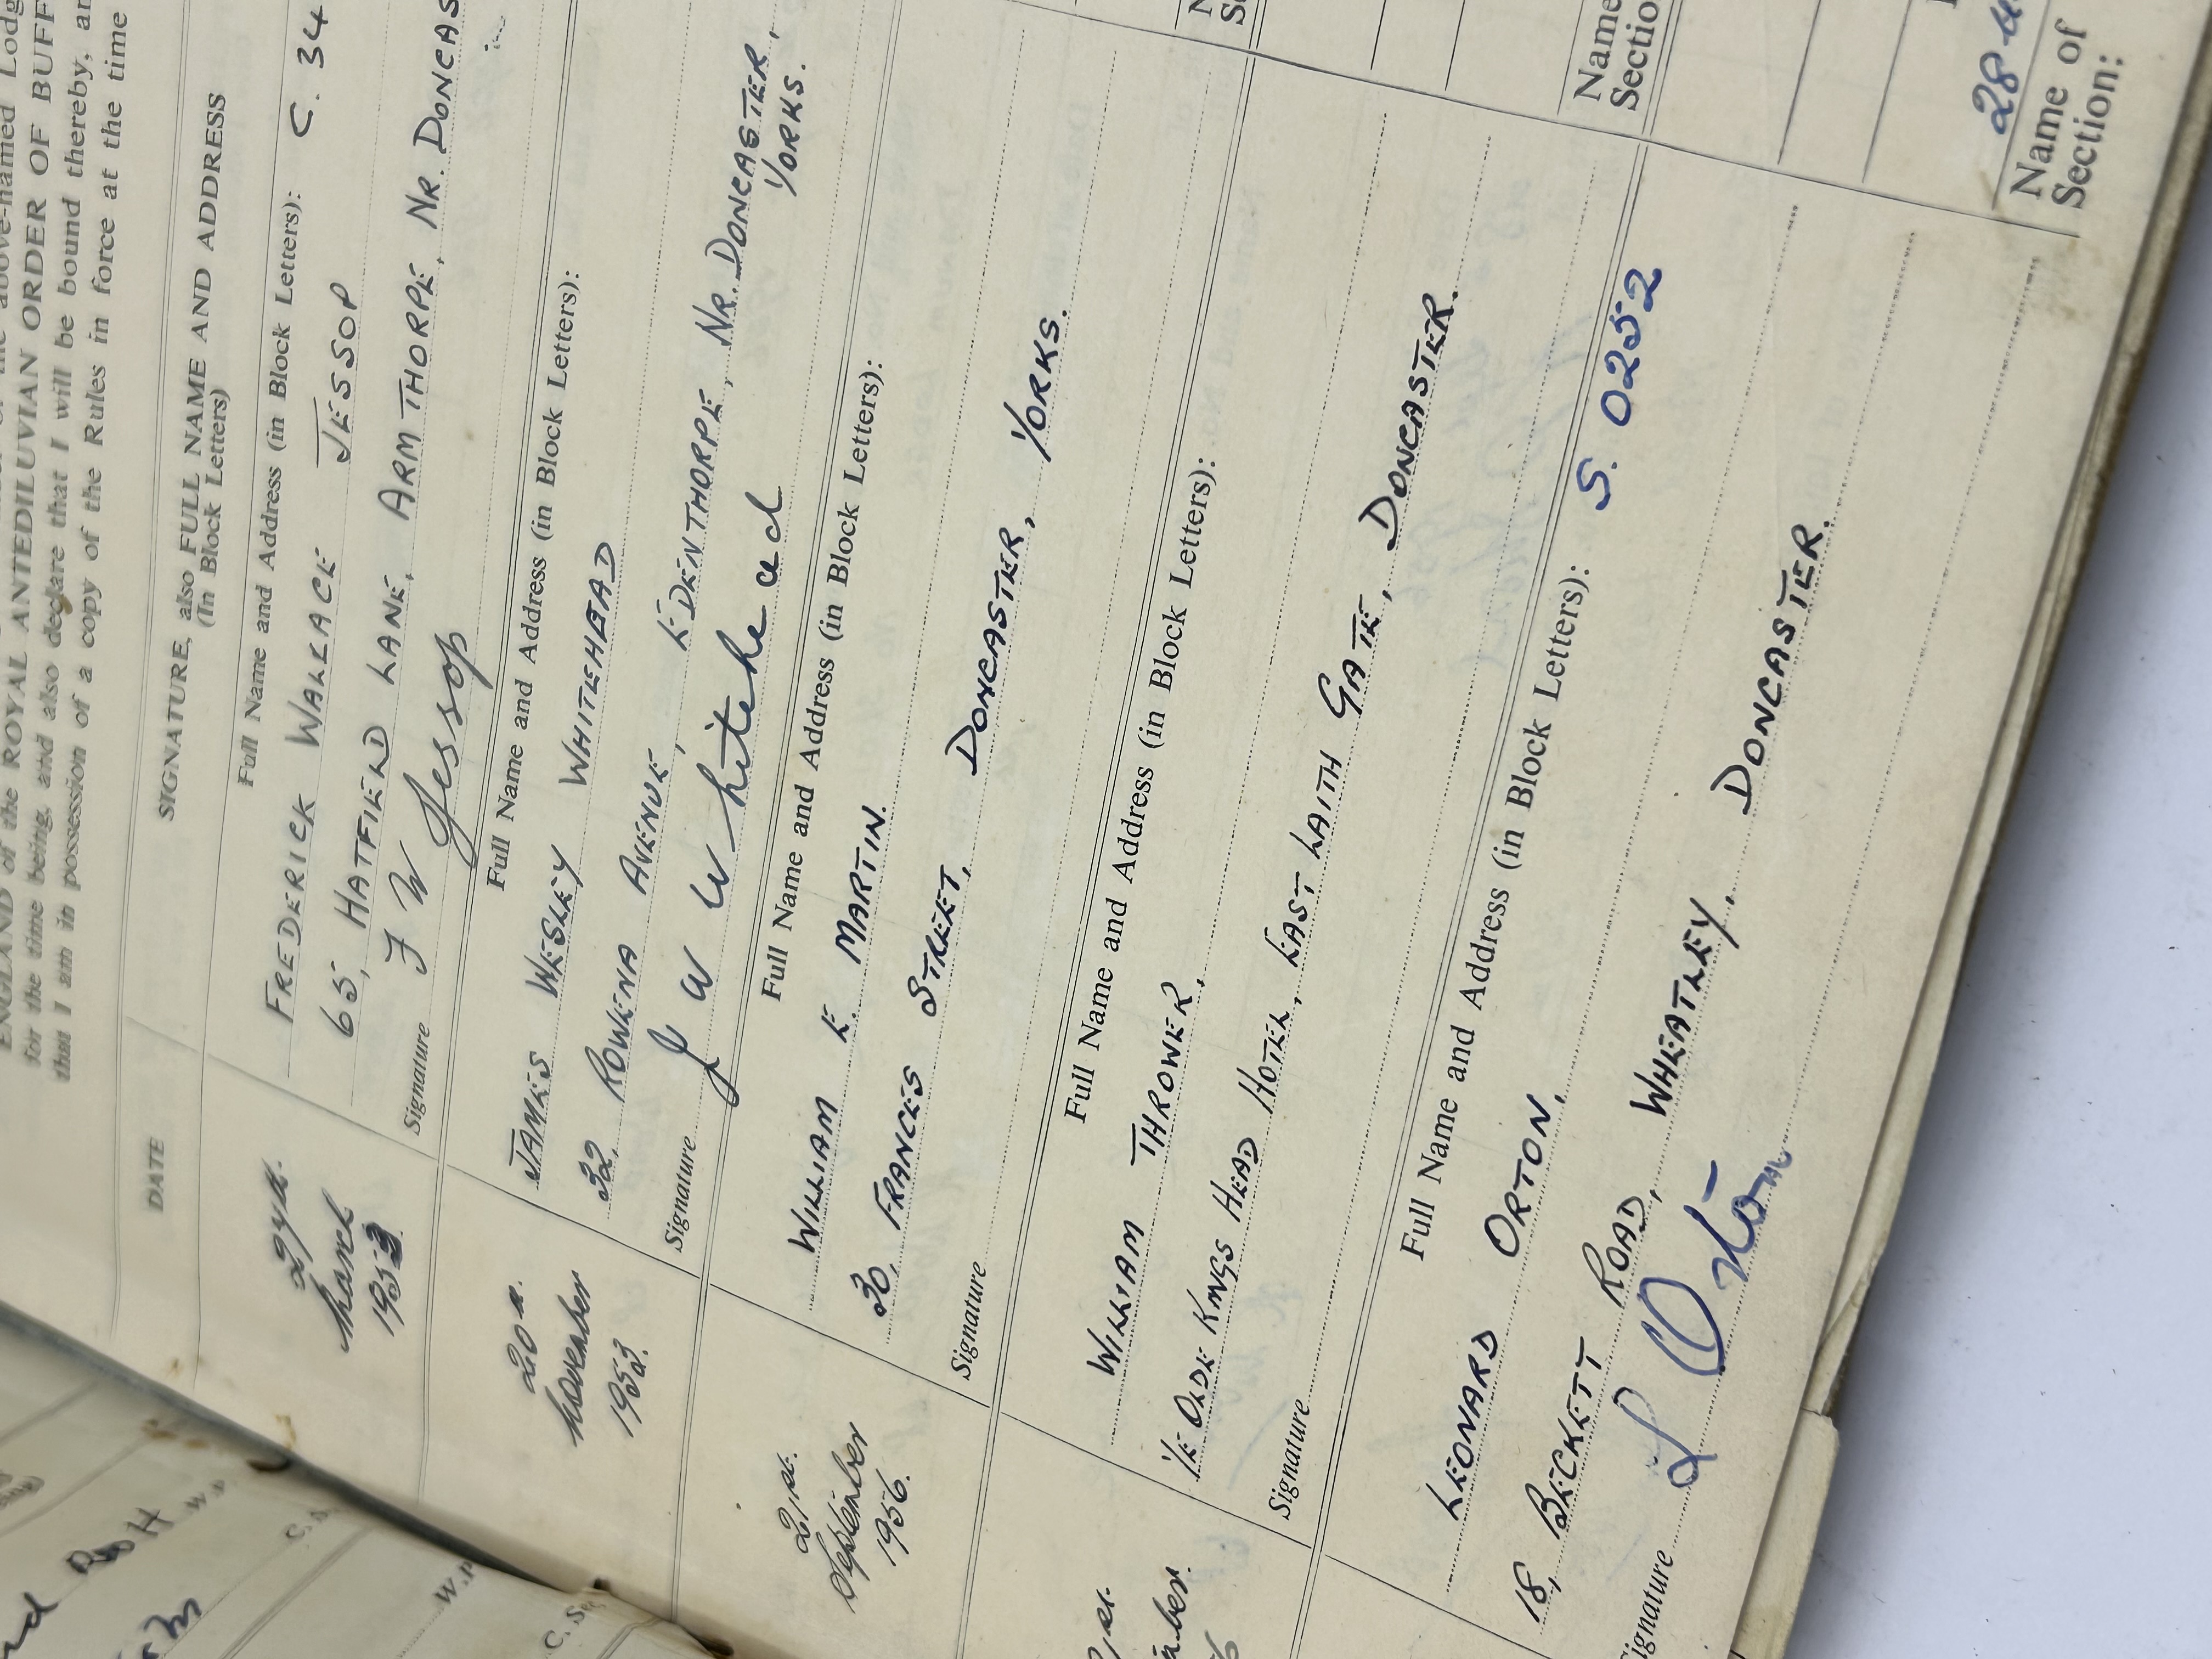 above-named Lodge
ENGLAND of the ROYAL ANTEDILUVIAN ORDER OF BUFF
for the time being, and also declare that I will be bound thereby, an
that I am in possession of a copy of the Rules in force at the time
DATE
SIGNATURE, also FULL NAME AND ADDRESS
(In Block Letters)
27th.
March
1953
Full Name and Address (in Block Letters): C. 34
FREDERICK WALLACE JESSOP
65, HATFIELD LANE, ARMTHORPE, NR. DONCAS
Signature F W Jessop
20th.
November
1953.
Full Name and Address (in Block Letters):
JAMES WESLEY WHITEHEAD
32, ROWENA AVENUE, EDENTHORPE, NR. DONCASTER,
YORKS.
Signature J W Whitehead
21st.
September
1956.
Full Name and Address (in Block Letters):
WILLIAM E. MARTIN.
30, FRANCES STREET, DONCASTER, YORKS.
Signature
21st.
mber.
6
Full Name and Address (in Block Letters):
WILLIAM THROWER.
YE OLDE KINGS HEAD HOTEL, EAST LAITH GATE, DONCASTER.
Signature
Full Name and Address (in Block Letters): S. 0252
LEONARD ORTON.
18, BECKETT ROAD, WHEATLEY, DONCASTER.
Signature L Orton
Name
Sectio
28
Name of
Section:
W.P
C. Sec